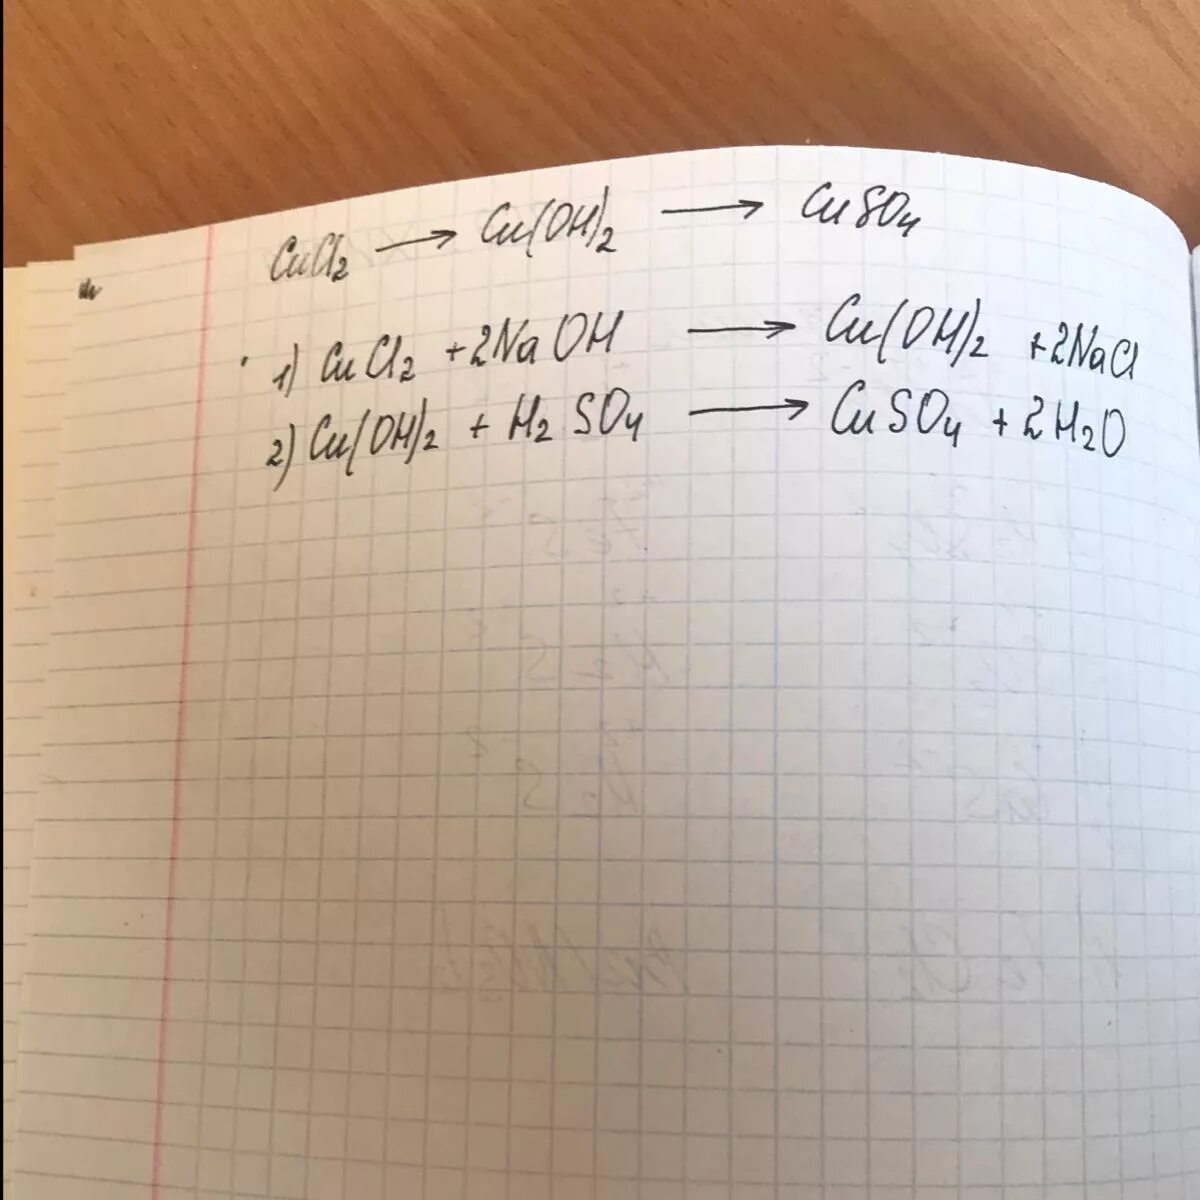 CuCl2 → Cu(OH)2 → CuSO4
1) CuCl2 + 2NaOH → Cu(OH)2 + 2NaCl
2) Cu(OH)2 + H2SO4 → CuSO4 + 2H2O